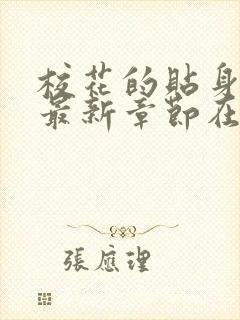 校花的貼身
最新章節在
張應理